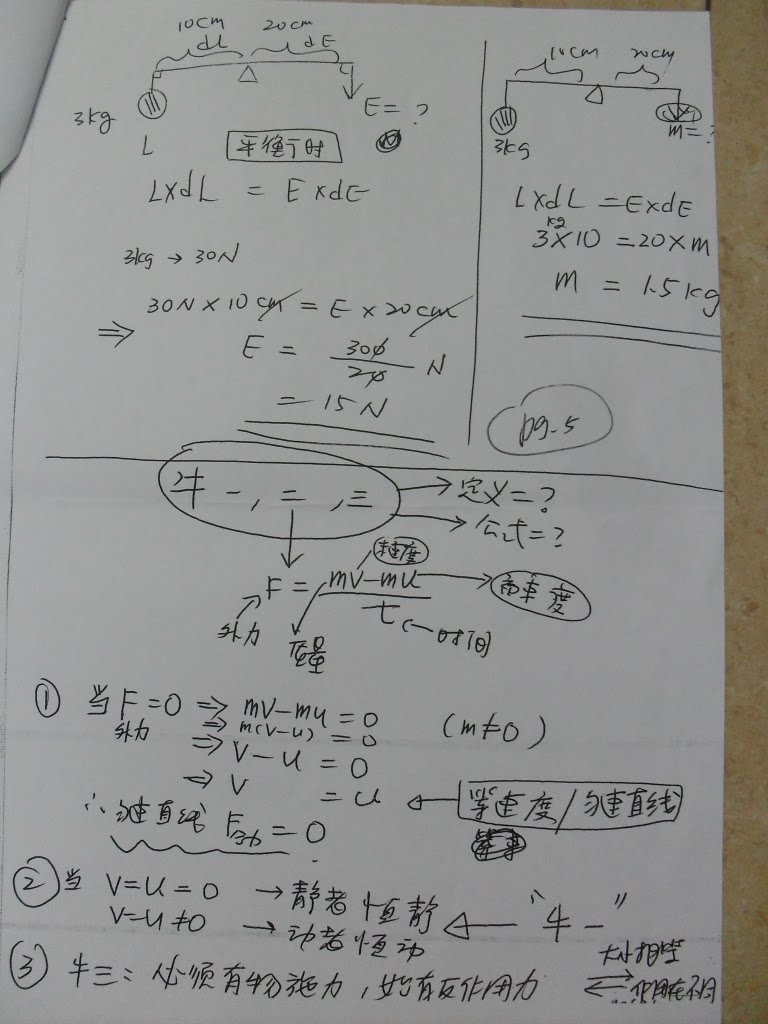 10cm 20cm
dL dE
3kg
L
E = ?
平衡时
L×dL = E×dE
3kg → 30N
⇒ 30N × 10cm = E × 20cm
E = 300/20 N
= 15N
10cm 20cm
3kg
m = ?
L×dL = E×dE
3kg×10 = 20×m
m = 1.5kg
pg-5
牛一,二,三
→ 定义=?
→ 公式=?
F = mv-mu/t
外力
(一时间)
① 当 F=0 ⇒ mv-mu = 0 (m≠0)
外力 ⇒ m(v-u) = 0
⇒ v-u = 0
⇒ v = u ← 速度/匀速直线
∴ 匀速直线 F外力 = 0
② 当 v=u=0 → 静者恒静
v=u≠0 → 动者恒动 ← "牛一"
③ 牛三: 必须有物施力, 始有反作用力